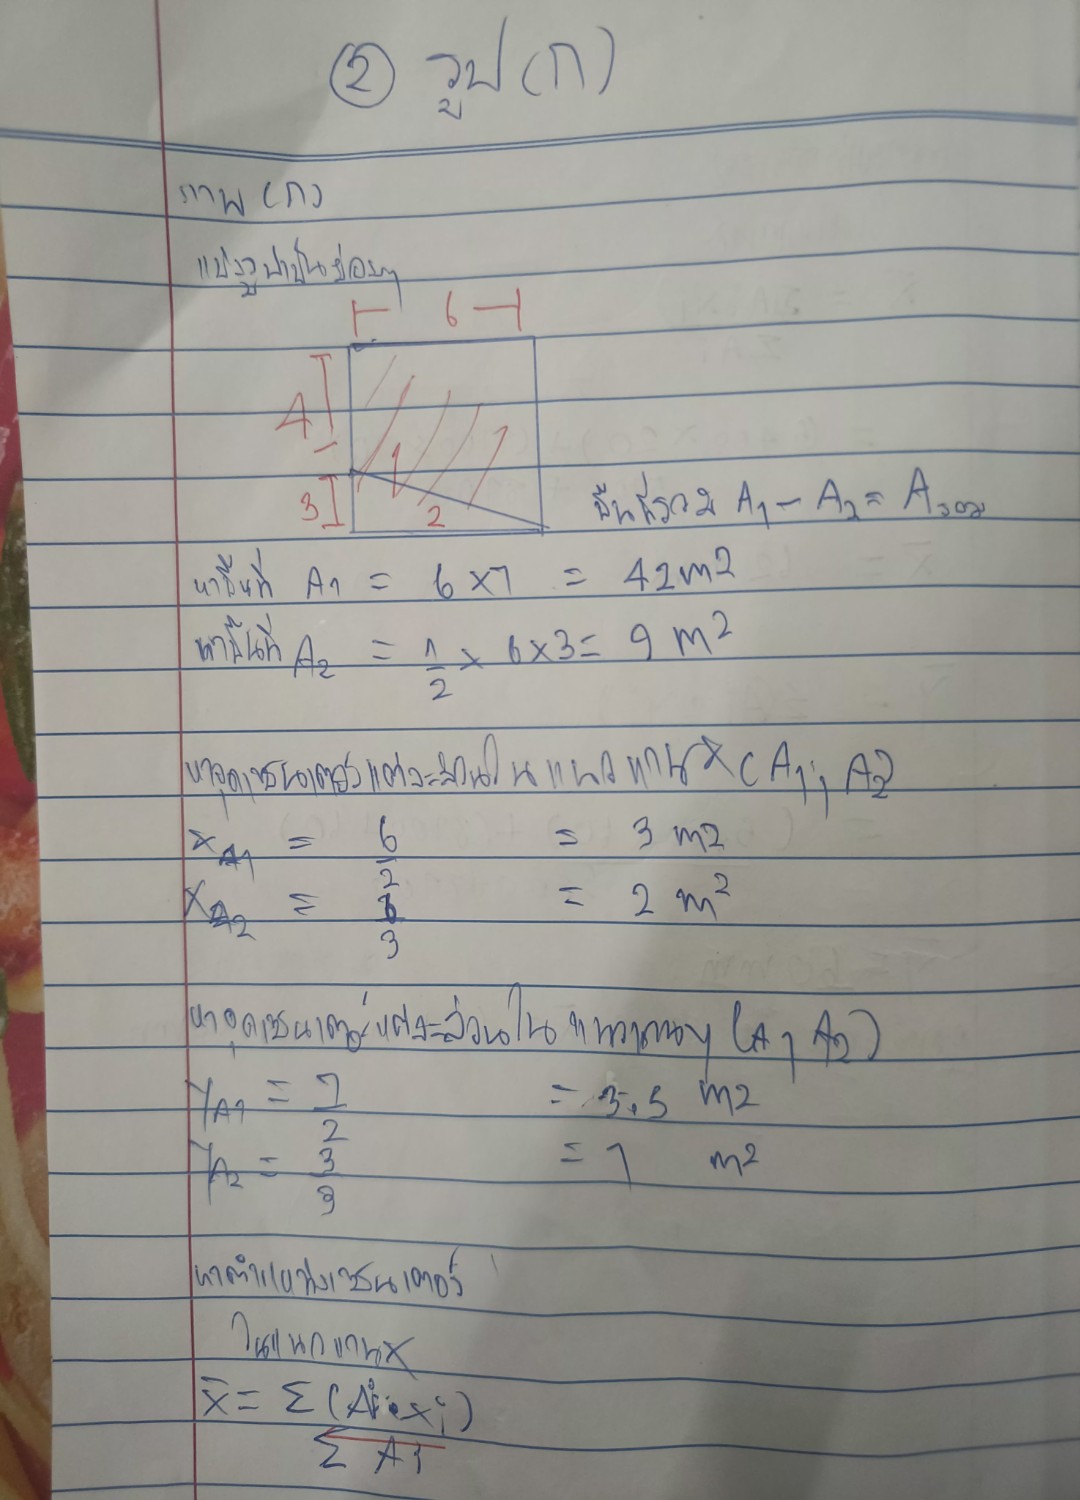 ② รูป (ก)
ภาพ (ก)
แบ่งรูปเป็นย่อยๆ
6
4
1
3
2
พื้นที่รวม A1 - A2 = Aรวม
หาพื้นที่ A1 = 6 x 7 = 42 m2
หาพื้นที่ A2 = 1/2 x 6 x 3 = 9 m2
หาจุดเซนเตอร์แต่ละส่วนในแนวแกน x (A1, A2
xA1 = 6/2 = 3 m2
xA2 = 6/3 = 2 m2
หาจุดเซนเตอร์แต่ละส่วนใน แนวแกนy (A1 A2)
yA1 = 7/2 = 3.5 m2
yA2 = 3/3 = 1 m2
หาตำแหน่งเซนเตอร์
ในแนวแกนx
x̄ = Σ (Ai · xi)
Σ Ai